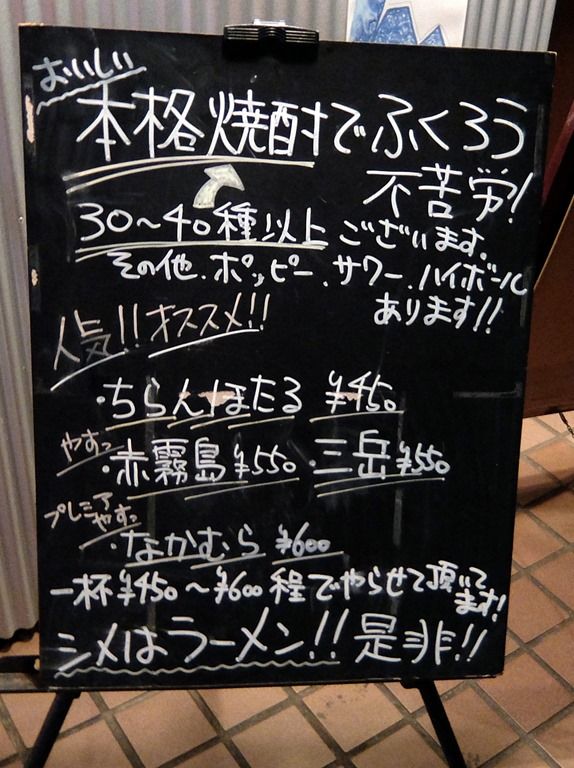 おいしい
本格焼酎でふくろう
不苦労!
30〜40種以上ございます。
その他、ホッピー、サワー、ハイボール
あります!!
人気!!オススメ!!
・ちらんほたる ¥450
やすっ
・赤霧島¥550 ・三岳¥550
プレミアやすっ
・なかむら ¥600
一杯¥450〜¥600程でやらせて頂いてます!
シメはラーメン!!是非!!